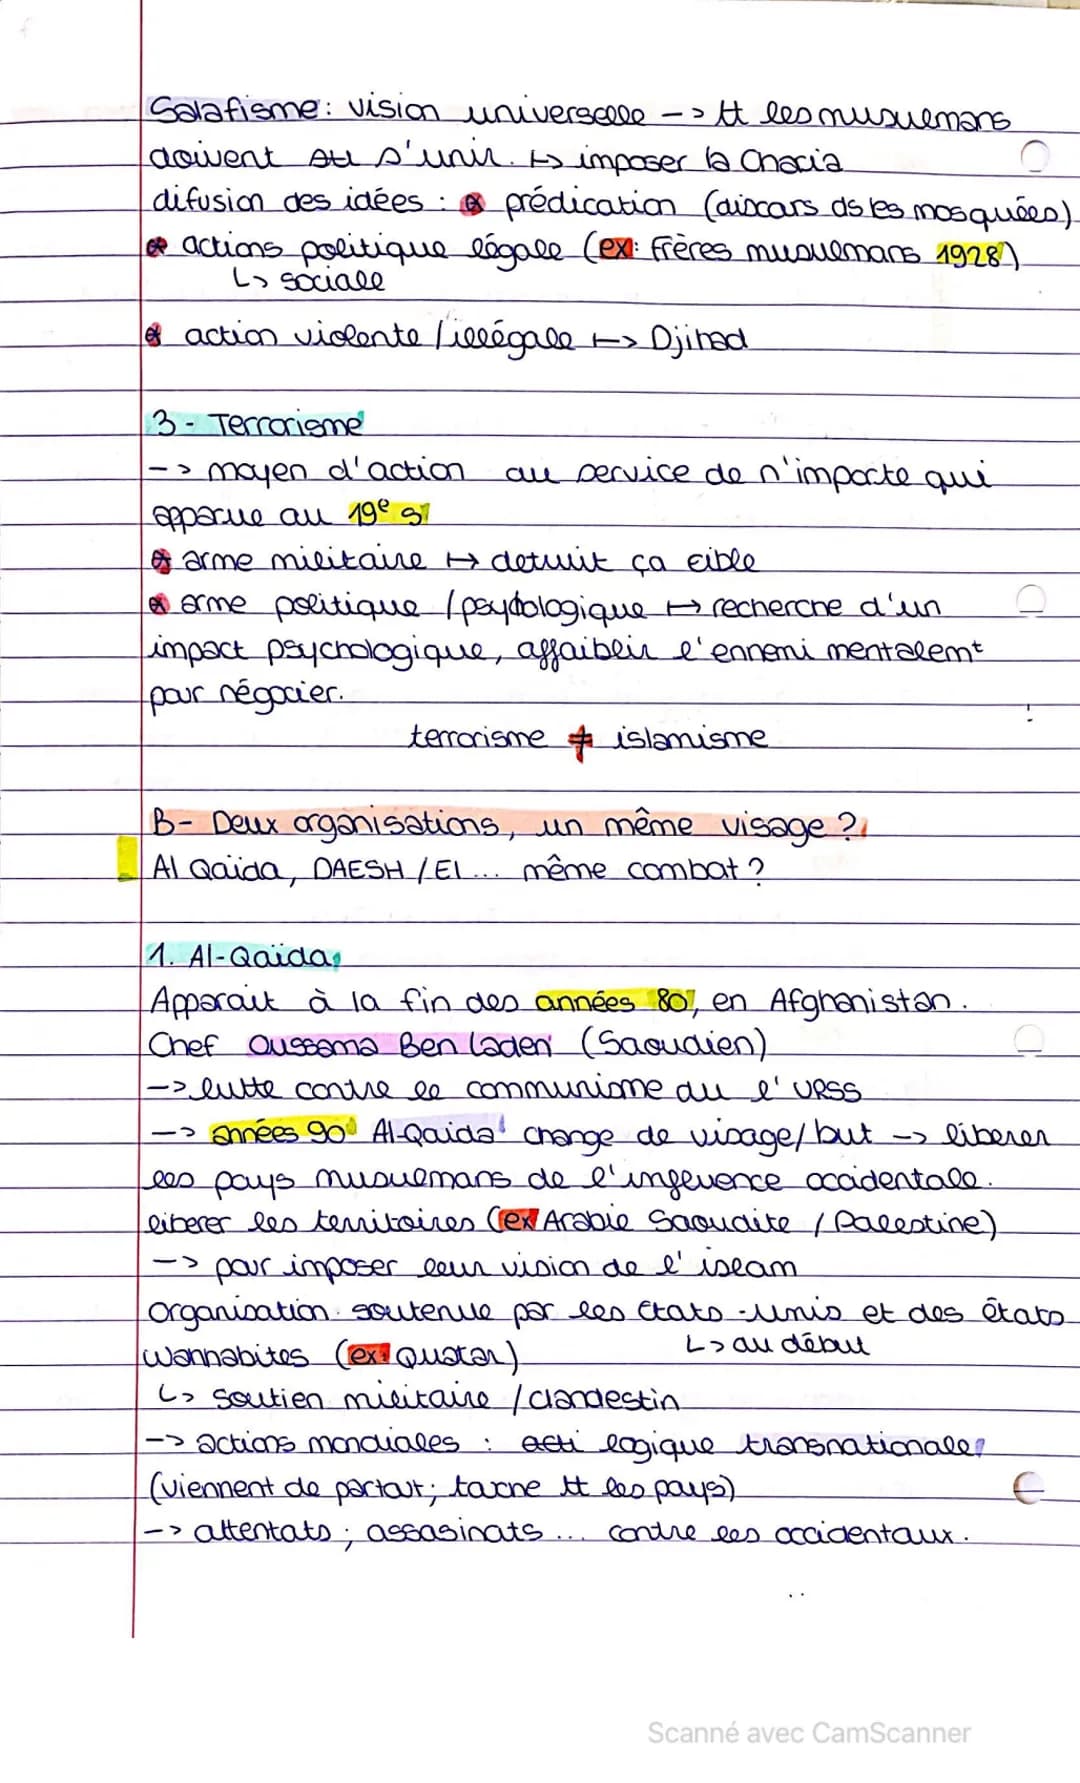 Salafisme : vision universelle --> tt les musulmans
doivent s'unir. ↦ imposer la Charia
difusion des idées : ⊗ prédication (discours ds les mosquées)
⊗ actions politique légale (ex: Frères musulmans 1928)
↳ sociale
⊗ action violente / illégale ↦ Djihad
3 - Terrorisme
--> moyen d'action au service de n'importe qui
apparue au 19e s
⊗ arme militaire ↦ detruit ça cible
⊗ arme politique / psychologique ↦ recherche d'un
impact psychologique, affaiblir l'ennemi mentalemt
pour négocier.
terrorisme ≠ islamisme
B- Deux organisations, un même visage ?
Al Qaïda, DAESH / EI ... même combat ?
1. Al-Qaïda
Apparait à la fin des années 80, en Afghanistan.
Chef Oussama Ben Laden (Saoudien)
--> lutte contre le communisme ou l'URSS
--> années 90 Al-Qaida change de visage/but --> liberer
les pays musulmans de l'influence occidentale.
liberer les territoires (ex Arabie Saoudite / Palestine)
--> pour imposer leur vision de l'islam
Organisation soutenue par les Etats-unis et des états
↳ au début
wahhabites (ex: Quatar)
↳ soutien militaire / clandestin
--> actions mondiales : logique transnationale
(viennent de partout; touche tt les pays)
--> attentats ; assasinats ... contre les occidentaux.
Scanné avec CamScanner